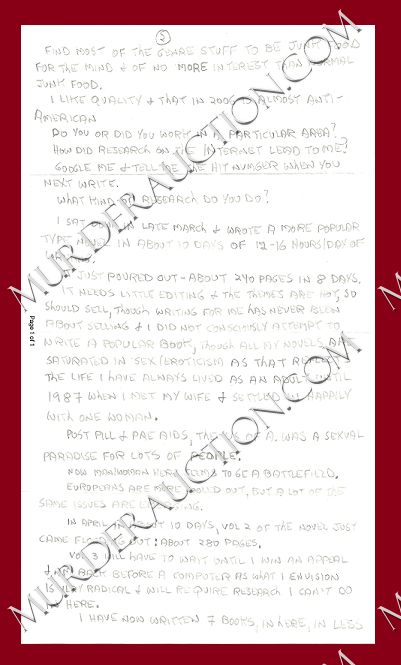 2
FIND MOST OF THE GENRE STUFF TO BE JUNK FOOD
FOR THE MIND & OF NO MORE INTEREST THAN NORMAL
JUNK FOOD.
I LIKE QUALITY & THAT IN 2006 IS ALMOST ANTI-
AMERICAN
DO YOU OR DID YOU WORK IN A PARTICULAR AREA?
HOW DID RESEARCH ON THE INTERNET LEAD TO ME?
GOOGLE ME & TELL ME THE HIT NUMBER WHEN YOU
NEXT WRITE.
WHAT KIND OF RESEARCH DO YOU DO?
I SAT DOWN IN LATE MARCH & WROTE A MORE POPULAR
TYPE NOVEL IN ABOUT 10 DAYS OF 12-16 HOURS/DAY OF
IT JUST POURED OUT - ABOUT 240 PAGES IN 8 DAYS.
IT NEEDS LITTLE EDITING & THE THEMES ARE HOT, SO
SHOULD SELL, THOUGH WRITING FOR ME HAS NEVER BEEN
ABOUT SELLING & I DID NOT CONSCIOUSLY ATTEMPT TO
WRITE A POPULAR BOOK, THOUGH ALL MY NOVELS ARE
SATURATED IN SEX/EROTICISM AS THAT REFLECTS
THE LIFE I HAVE ALWAYS LIVED AS AN ADULT UNTIL
1987 WHEN I MET MY WIFE & SETTLED IN HAPPILY
WITH ONE WOMAN.
POST PILL & PRE AIDS, THE U.S. OF A. WAS A SEXUAL
PARADISE FOR LOTS OF PEOPLE.
NOW MAN/WOMAN HERE SEEMS TO BE A BATTLEFIELD.
EUROPEANS ARE MORE COOLED OUT, BUT A LOT OF THE
SAME ISSUES ARE
IN APRIL IN ABOUT 10 DAYS, VOL 2 OF THE NOVEL JUST
CAME FLOATING OUT: ABOUT 280 PAGES.
VOL 3 WILL HAVE TO WAIT UNTIL I WIN AN APPEAL
& AM BACK BEFORE A COMPUTER AS WHAT I ENVISION
IS VERY RADICAL & WILL REQUIRE RESEARCH I CAN'T DO
IN HERE.
I HAVE NOW WRITTEN 7 BOOKS, IN HERE, IN LESS
Page 1 of 1
MURDERAUCTION.COM
MURDERAUCTION.COM
MURDERAUCTION.COM